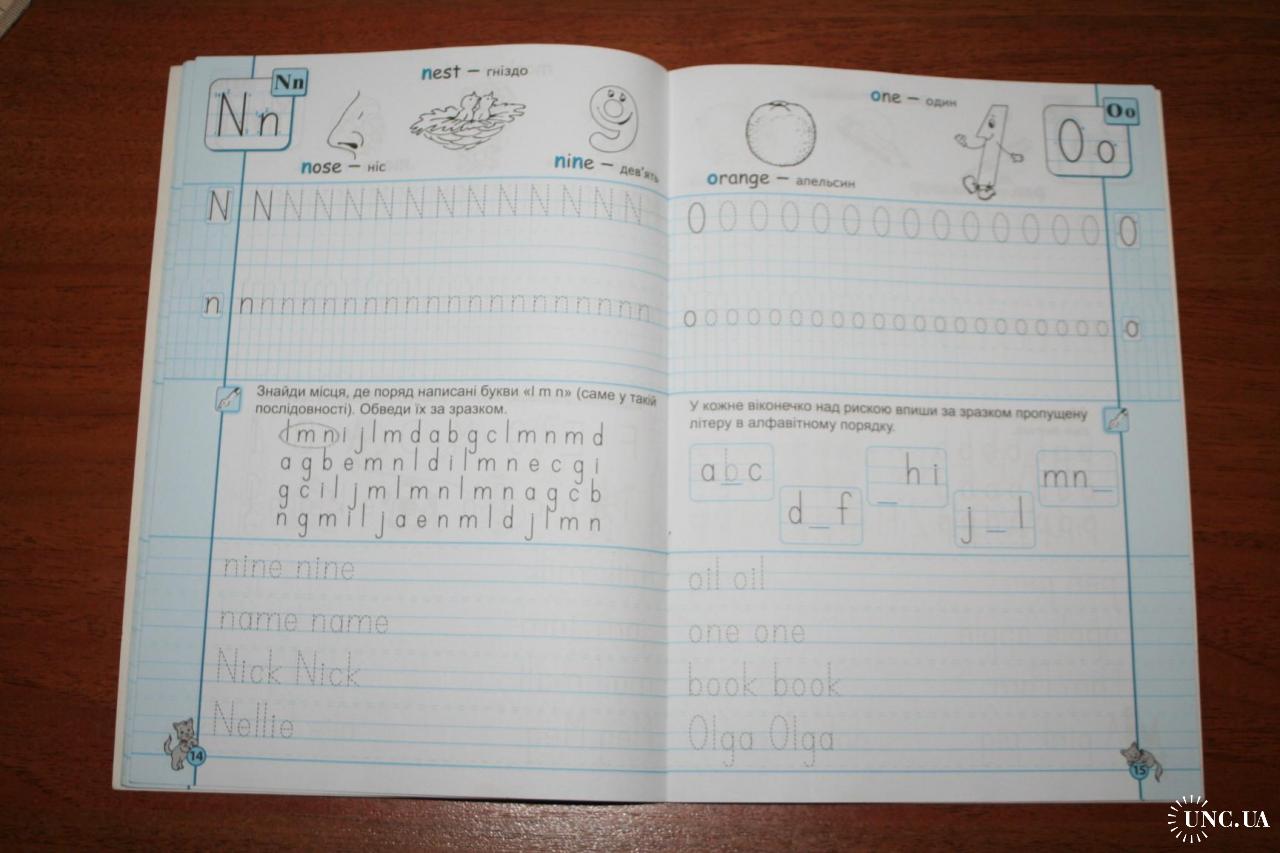 Nn
N n
nest – гніздо
nose – ніс
nine – дев'ять
N N N N N N N N N N N N N N
n n n n n n n n n n n n n n n n n n n n n
Знайди місця, де поряд написані букви «l m n» (саме у такій
послідовності). Обведи їх за зразком.
l m n i j l m d a b g c l m n m d
a g b e m n l d i l m n e c g i
g c i l j m l m n l m n a g c b
n g m i l j a e n m l d j l m n
nine nine
name name
Nick Nick
Nellie
14
one – один
Oo
O o
orange – апельсин
O O O O O O O O O O O O O O O
o o o o o o o o o o o o o o o o o o o o o o
У кожне віконечко над рискою впиши за зразком пропущену
літеру в алфавітному порядку.
a b c
d _ f
_ h i
j _ l
m n _
oil oil
one one
book book
Olga Olga
15
UNC.UA